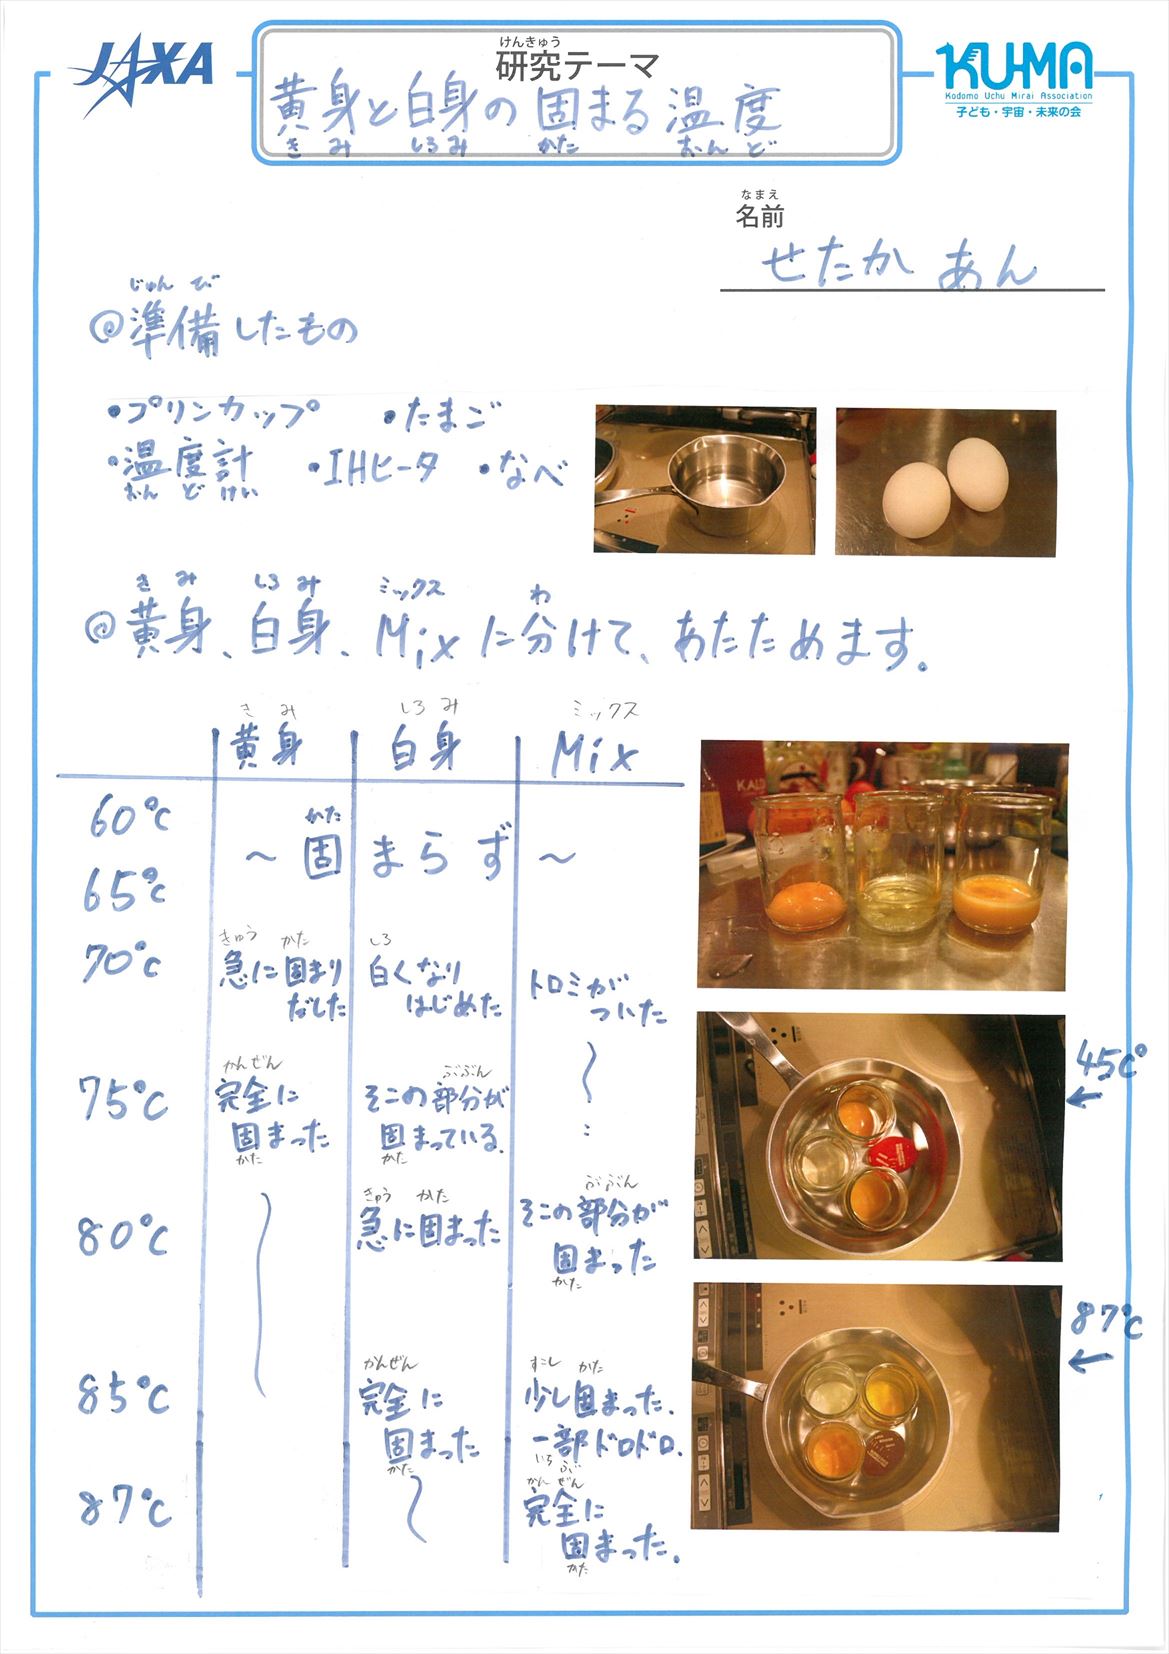 JAXA
けんきゅう
研究テーマ
黄身と白身の固まる温度
き み しろ み かた おん ど
KU-MA
Kodomo Uchu Mirai Association
子ども・宇宙・未来の会
なまえ
名前
せたか あん
じゅん び
◎準備したもの
・プリンカップ ・たまご
・温度計 ・IHヒータ ・なべ
おん ど けい
き み しろ み ミックス わ
◎黄身、白身、Mixに分けて、あたためます。
き み しろ み ミックス
黄身 白身 Mix
60℃
かた
〜固まらず〜
65℃
きゅう かた しろ
70℃ 急に固まりだした 白くなりはじめた トロミがついた
かんぜん ぶぶん
75℃ 完全に固まった そこの部分が固まっている. 〜 :
かた かた
きゅう かた ぶぶん
80℃ 急に固まった そこの部分が固まった
かた
かんぜん すこし かた
85℃ 完全に固まった 少し固まった. 一部ドロドロ.
かた いち ぶ
かん ぜん
87℃ 完全に固まった.
かた
KALDI
45C°
←
87℃
←